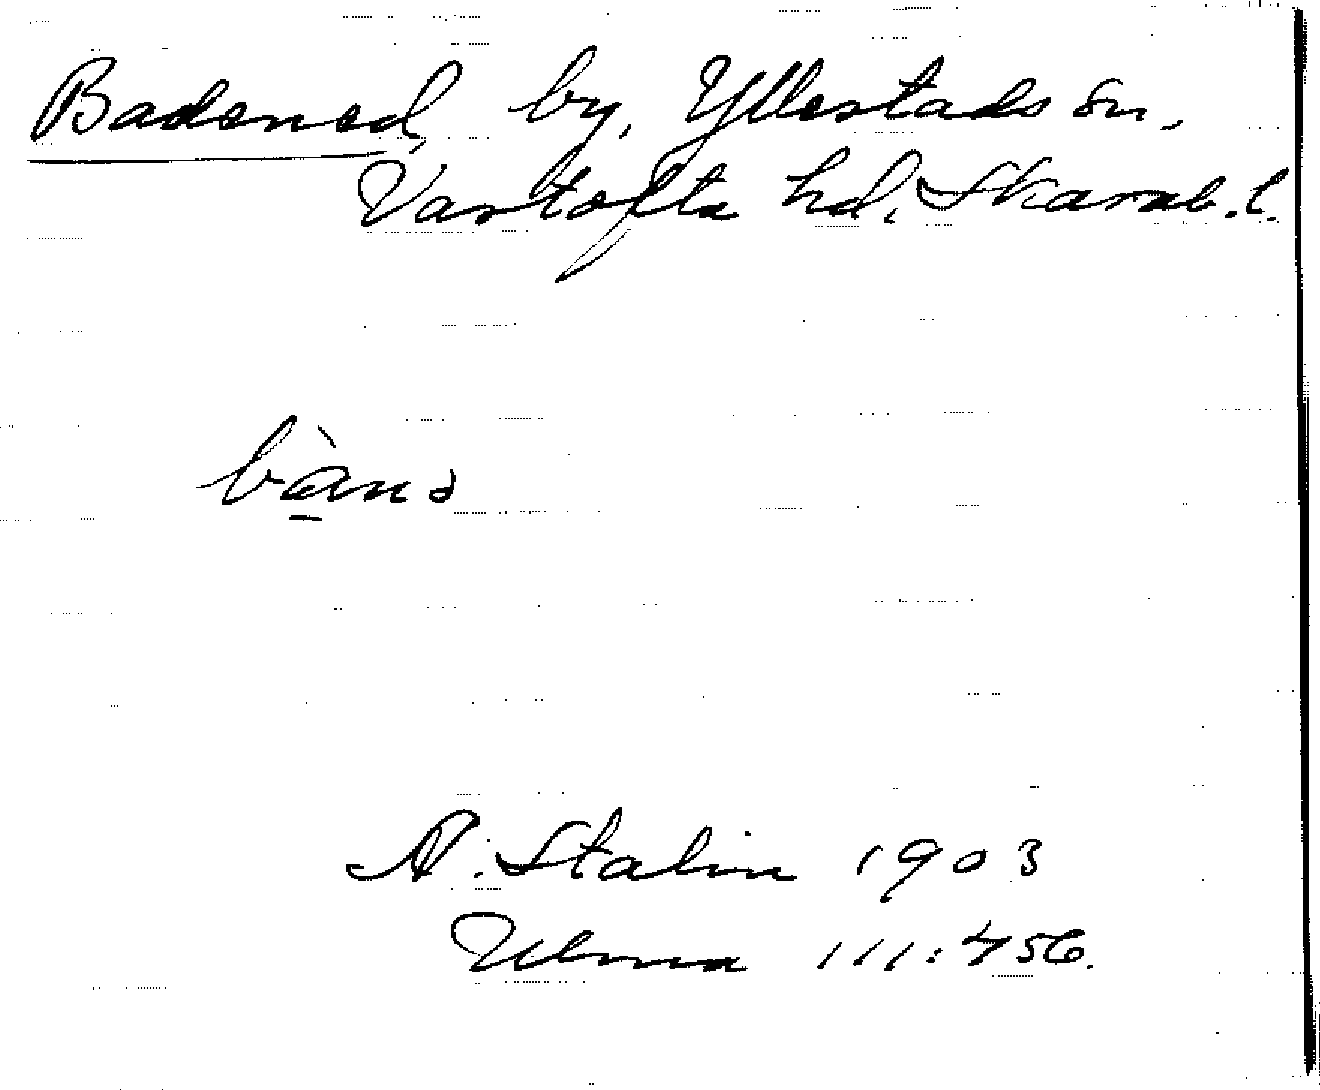 Badened by, Yllestads sn.
Vartofta hd, Skarab. l.
bànə
A. Stalin 1903
Ulma 111:456.